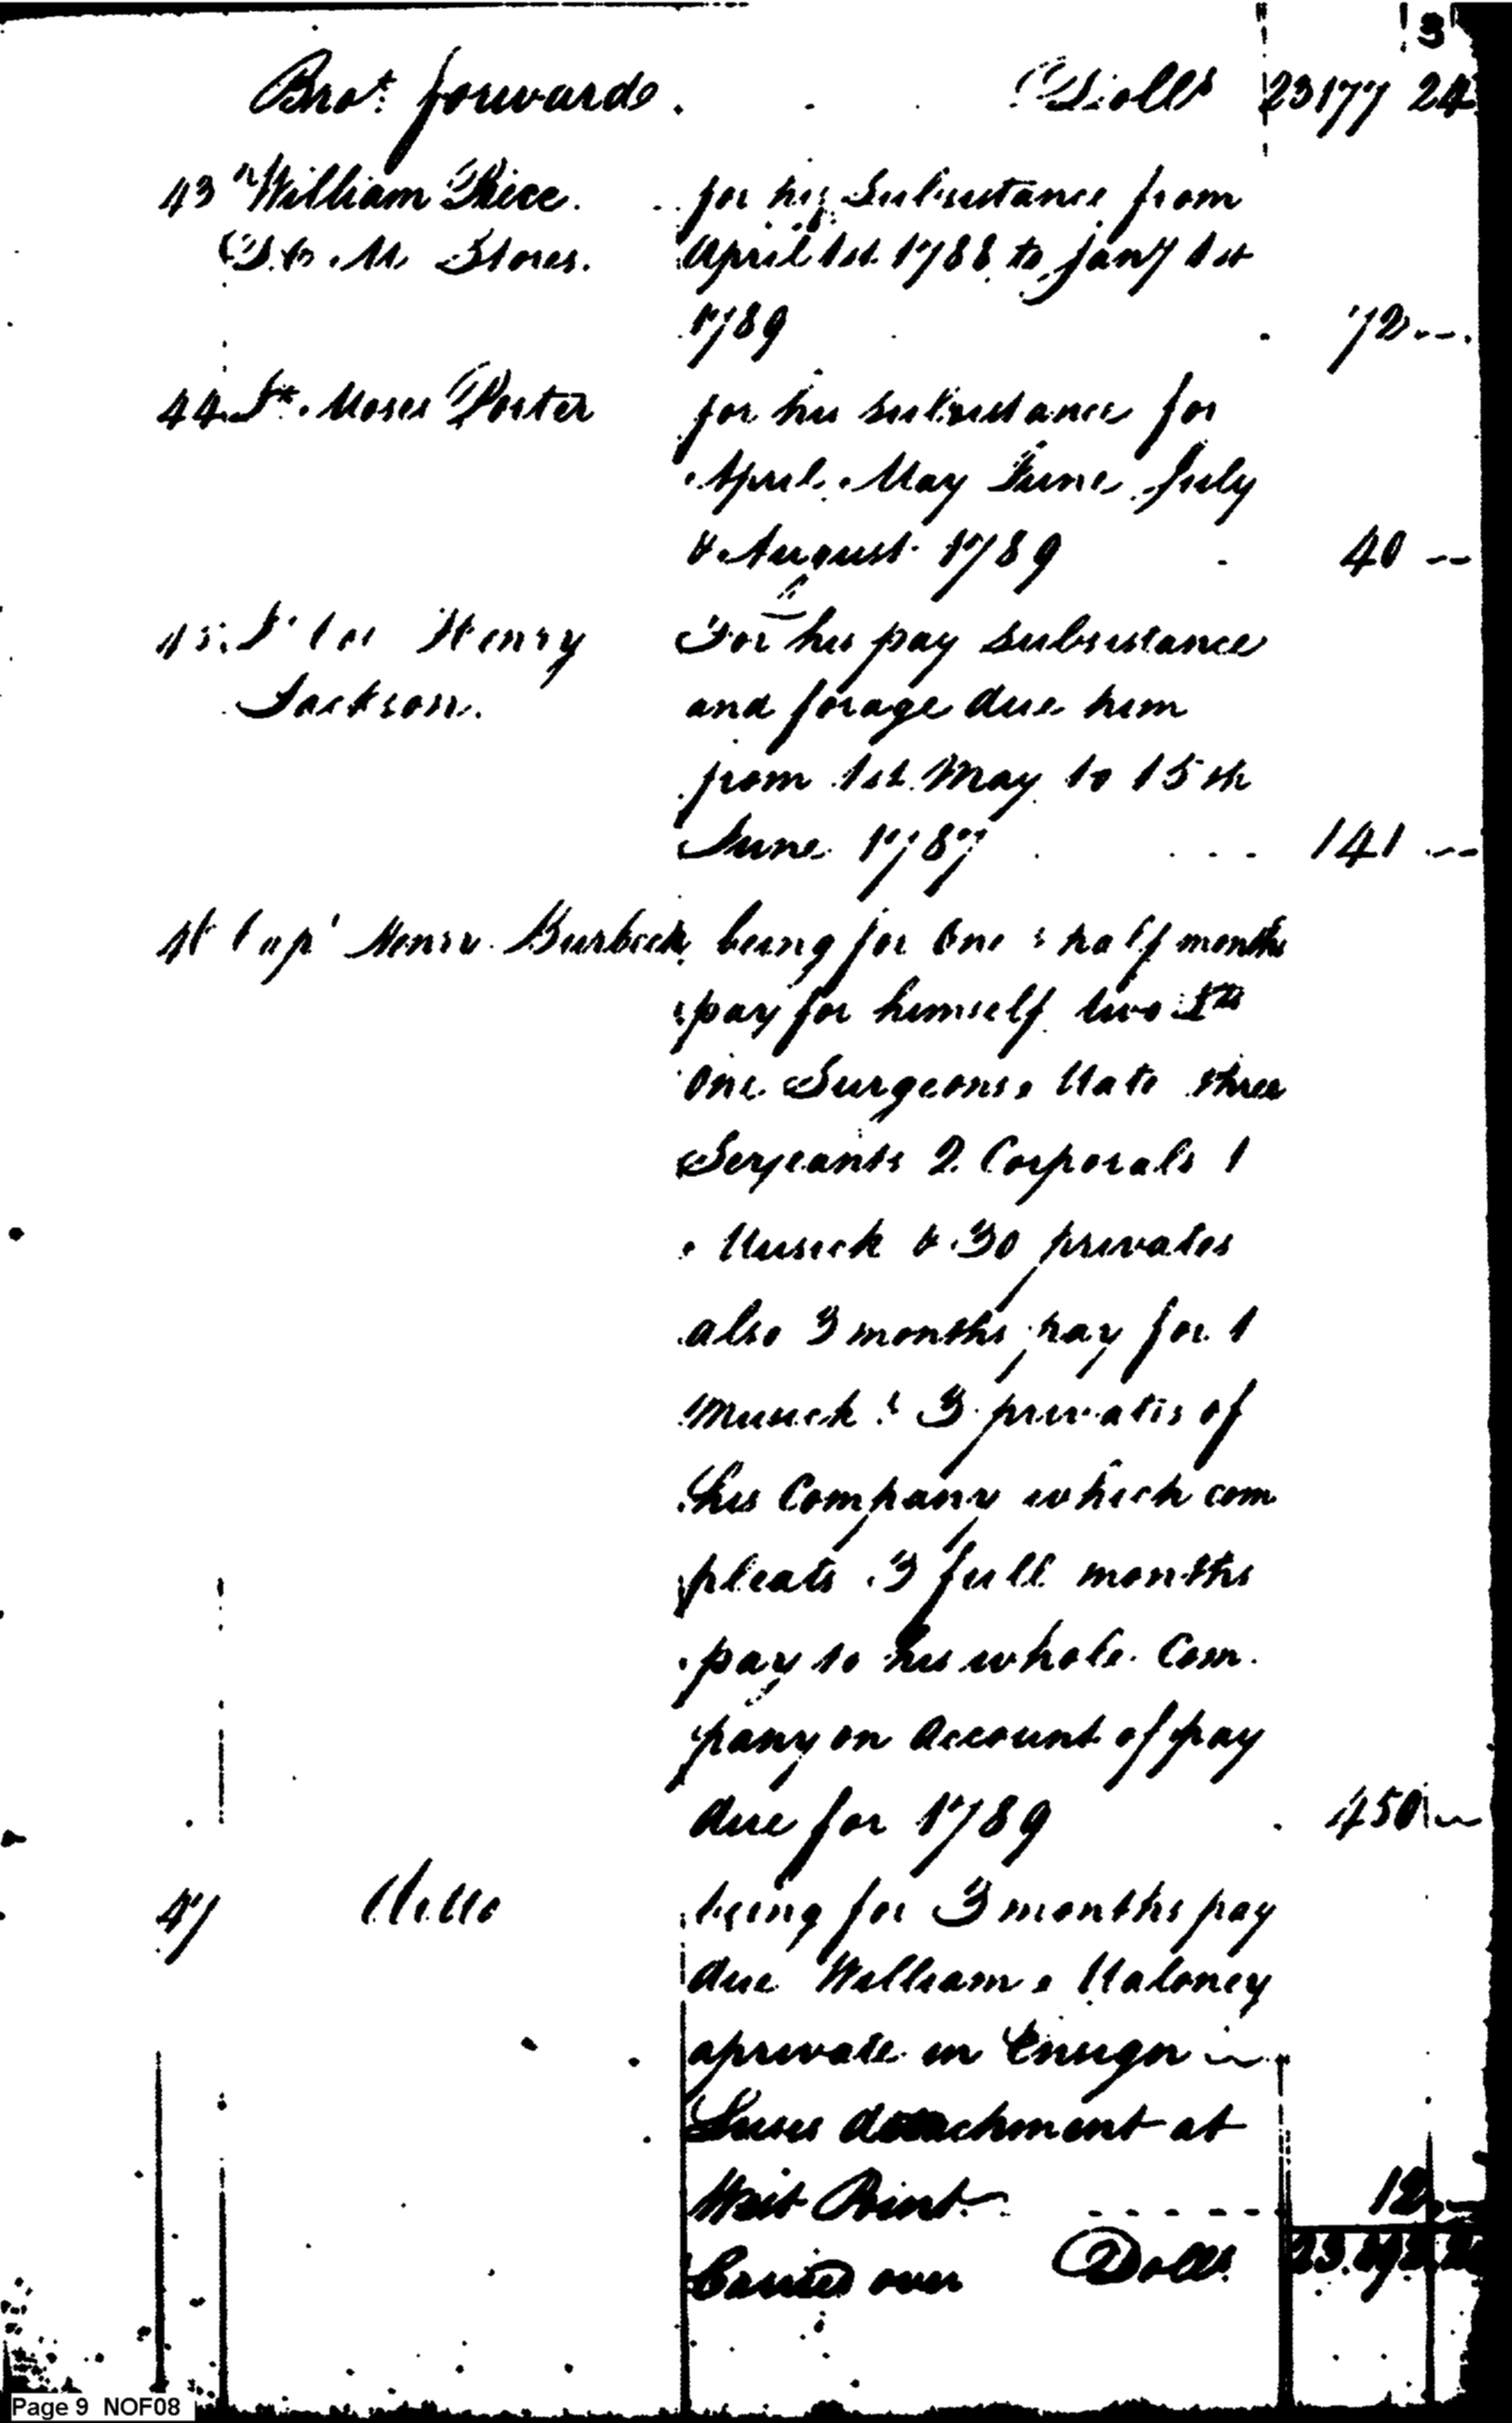 3
Brot. forward. Dolls 23177 24
43 William Price. for his Subsistance from
D. C. M. Stores. April 1st. 1788 to Jany 1st
1789 72
44 Lt. Moses Porter for his subsistance for
April. May June July
& August 1789 40
45 Lt Col Henry For his pay subsistance
Jackson. and forage due him
from 1st. May to 15th
June 1787 141
46 Capt Henry Burbeck being for One & half months
pay for himself two Lts
One Surgeons Mate three
Serjeants 2 Corporals 1
Musick & 30 privates
also 3 months pay for 1
Musick & 3 privates of
his Company which com
pleats 3 full months
pay to his whole Com.
pany on Account of pay
due for 1789 450
47 Ditto being for 3 months pay
due William Maloney
a private in Ensign
detachment at
West Point 12
Carried over Dolls.
Page 9 NOF08